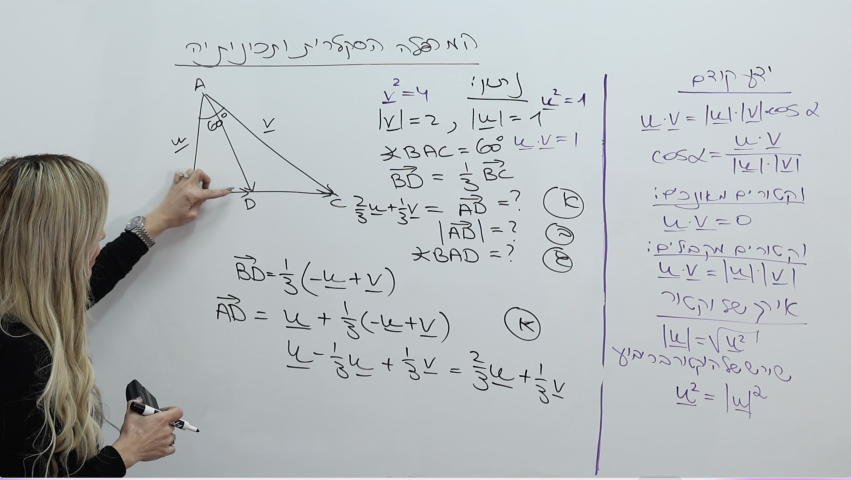 המכפלה הסקלרית ותכונותיה
A
60°
u
v
D
C
נתון:
v² = 4
u² = 1
|v| = 2 , |u| = 1
∢BAC = 60°
u·v = 1
BD→ = 1/3 BC→
2/3 u + 1/3 v = AD→ = ?
א
|AD→| = ?
ב
∢BAD = ?
ג
BD→ = 1/3 (-u + v)
AD→ = u + 1/3 (-u + v)
א
u - 1/3 u + 1/3 v = 2/3 u + 1/3 v
ידע קודם
u·v = |u|·|v|·cos α
cos α = u·v / |u|·|v|
וקטורים מאונכים:
u·v = 0
וקטורים מקבילים:
u·v = |u|·|v|
אורך של וקטור
|u| = √u²
שורש של הוקטור בריבוע
u² = |u|²